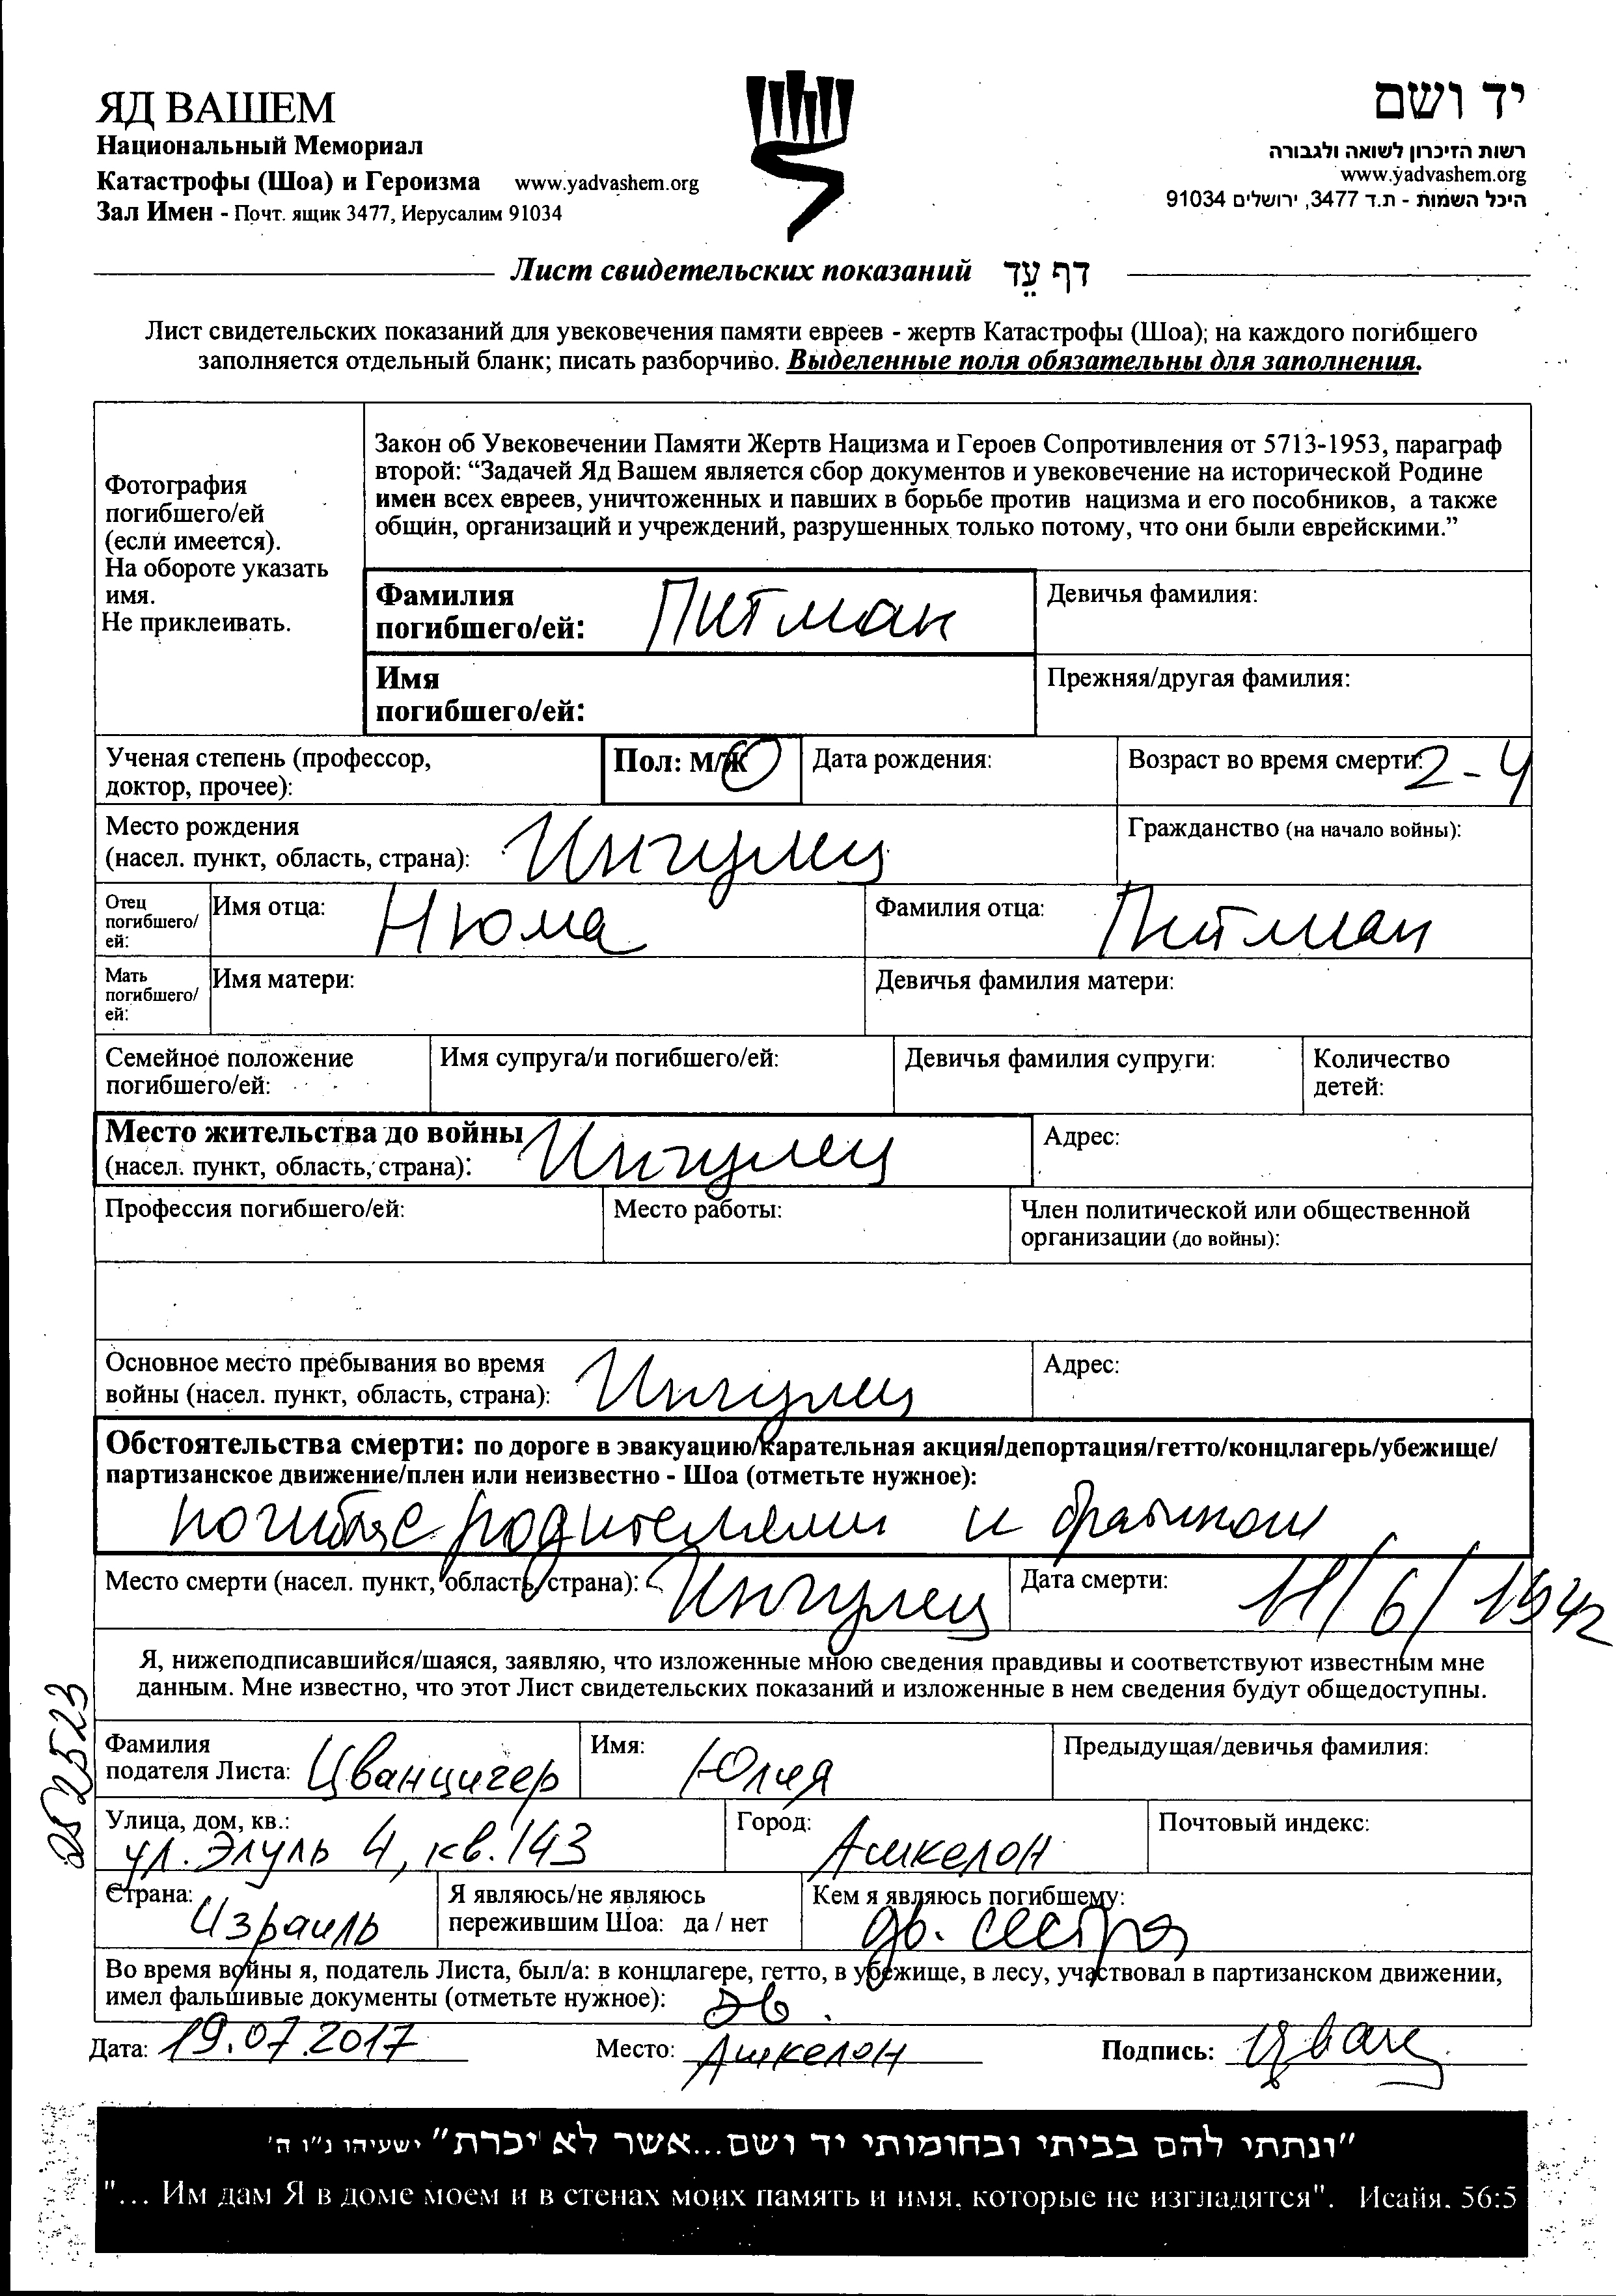 ЯД ВАШЕМ
Национальный Мемориал
Катастрофы (Шоа) и Героизма www.yadvashem.org
Зал Имен - Почт. ящик 3477, Иерусалим 91034
יד ושם
רשות הזיכרון לשואה ולגבורה
www.yadvashem.org
היכל השמות - ת.ד 3477, ירושלים 91034
Лист свидетельских показаний דף עֵד
Лист свидетельских показаний для увековечения памяти евреев - жертв Катастрофы (Шоа); на каждого погибшего
заполняется отдельный бланк; писать разборчиво. Выделенные поля обязательны для заполнения.
Фотография
погибшего/ей
(если имеется).
На обороте указать
имя.
Не приклеивать.
Закон об Увековечении Памяти Жертв Нацизма и Героев Сопротивления от 5713-1953, параграф
второй: “Задачей Яд Вашем является сбор документов и увековечение на исторической Родине
имен всех евреев, уничтоженных и павших в борьбе против нацизма и его пособников, а также
общин, организаций и учреждений, разрушенных только потому, что они были еврейскими.”
Фамилия
погибшего/ей: Питман
Девичья фамилия:
Имя
погибшего/ей:
Прежняя/другая фамилия:
Ученая степень (профессор,
доктор, прочее):
Пол: М/Ж
Дата рождения:
Возраст во время смерти: 2-4
Место рождения
(насел. пункт, область, страна): Ингулец
Гражданство (на начало войны):
Отец
погибшего/
ей:
Имя отца: Нюма
Фамилия отца: Питман
Мать
погибшего/
ей:
Имя матери:
Девичья фамилия матери:
Семейное положение
погибшего/ей:
Имя супруга/и погибшего/ей:
Девичья фамилия супруги:
Количество
детей:
Место жительства до войны
(насел. пункт, область, страна): Ингулец
Адрес:
Профессия погибшего/ей:
Место работы:
Член политической или общественной
организации (до войны):
Основное место пребывания во время
войны (насел. пункт, область, страна): Ингулец
Адрес:
Обстоятельства смерти: по дороге в эвакуацию/карательная акция/депортация/гетто/концлагерь/убежище/
партизанское движение/плен или неизвестно - Шоа (отметьте нужное):
с родителями и братиком
Место смерти (насел. пункт, область, страна): Ингулец
Дата смерти: 11/6/1942
Я, нижеподписавшийся/шаяся, заявляю, что изложенные мною сведения правдивы и соответствуют известным мне
данным. Мне известно, что этот Лист свидетельских показаний и изложенные в нем сведения будут общедоступны.
252523
Фамилия
подателя Листа: Цванцигер
Имя: Юлия
Предыдущая/девичья фамилия:
Улица, дом, кв.:
ул. Элуль 4, кв. 143
Город:
Ашкелон
Почтовый индекс:
Страна:
Израиль
Я являюсь/не являюсь
пережившим Шоа: да / нет
Кем я являюсь погибшему:
дв. сестра
Во время войны я, податель Листа, был/а: в концлагере, гетто, в убежище, в лесу, участвовал в партизанском движении,
имел фальшивые документы (отметьте нужное): эв.
Дата: 19.07.2017 Место: Ашкелон Подпись: Цванц
"ונתתי להם בביתי ובחומותי יד ושם...אשר לא יכרת" ישעיהו נ"ו ה'
"... Им дам Я в доме моем и в стенах моих память и имя, которые не изгладятся". Исайя, 56:5